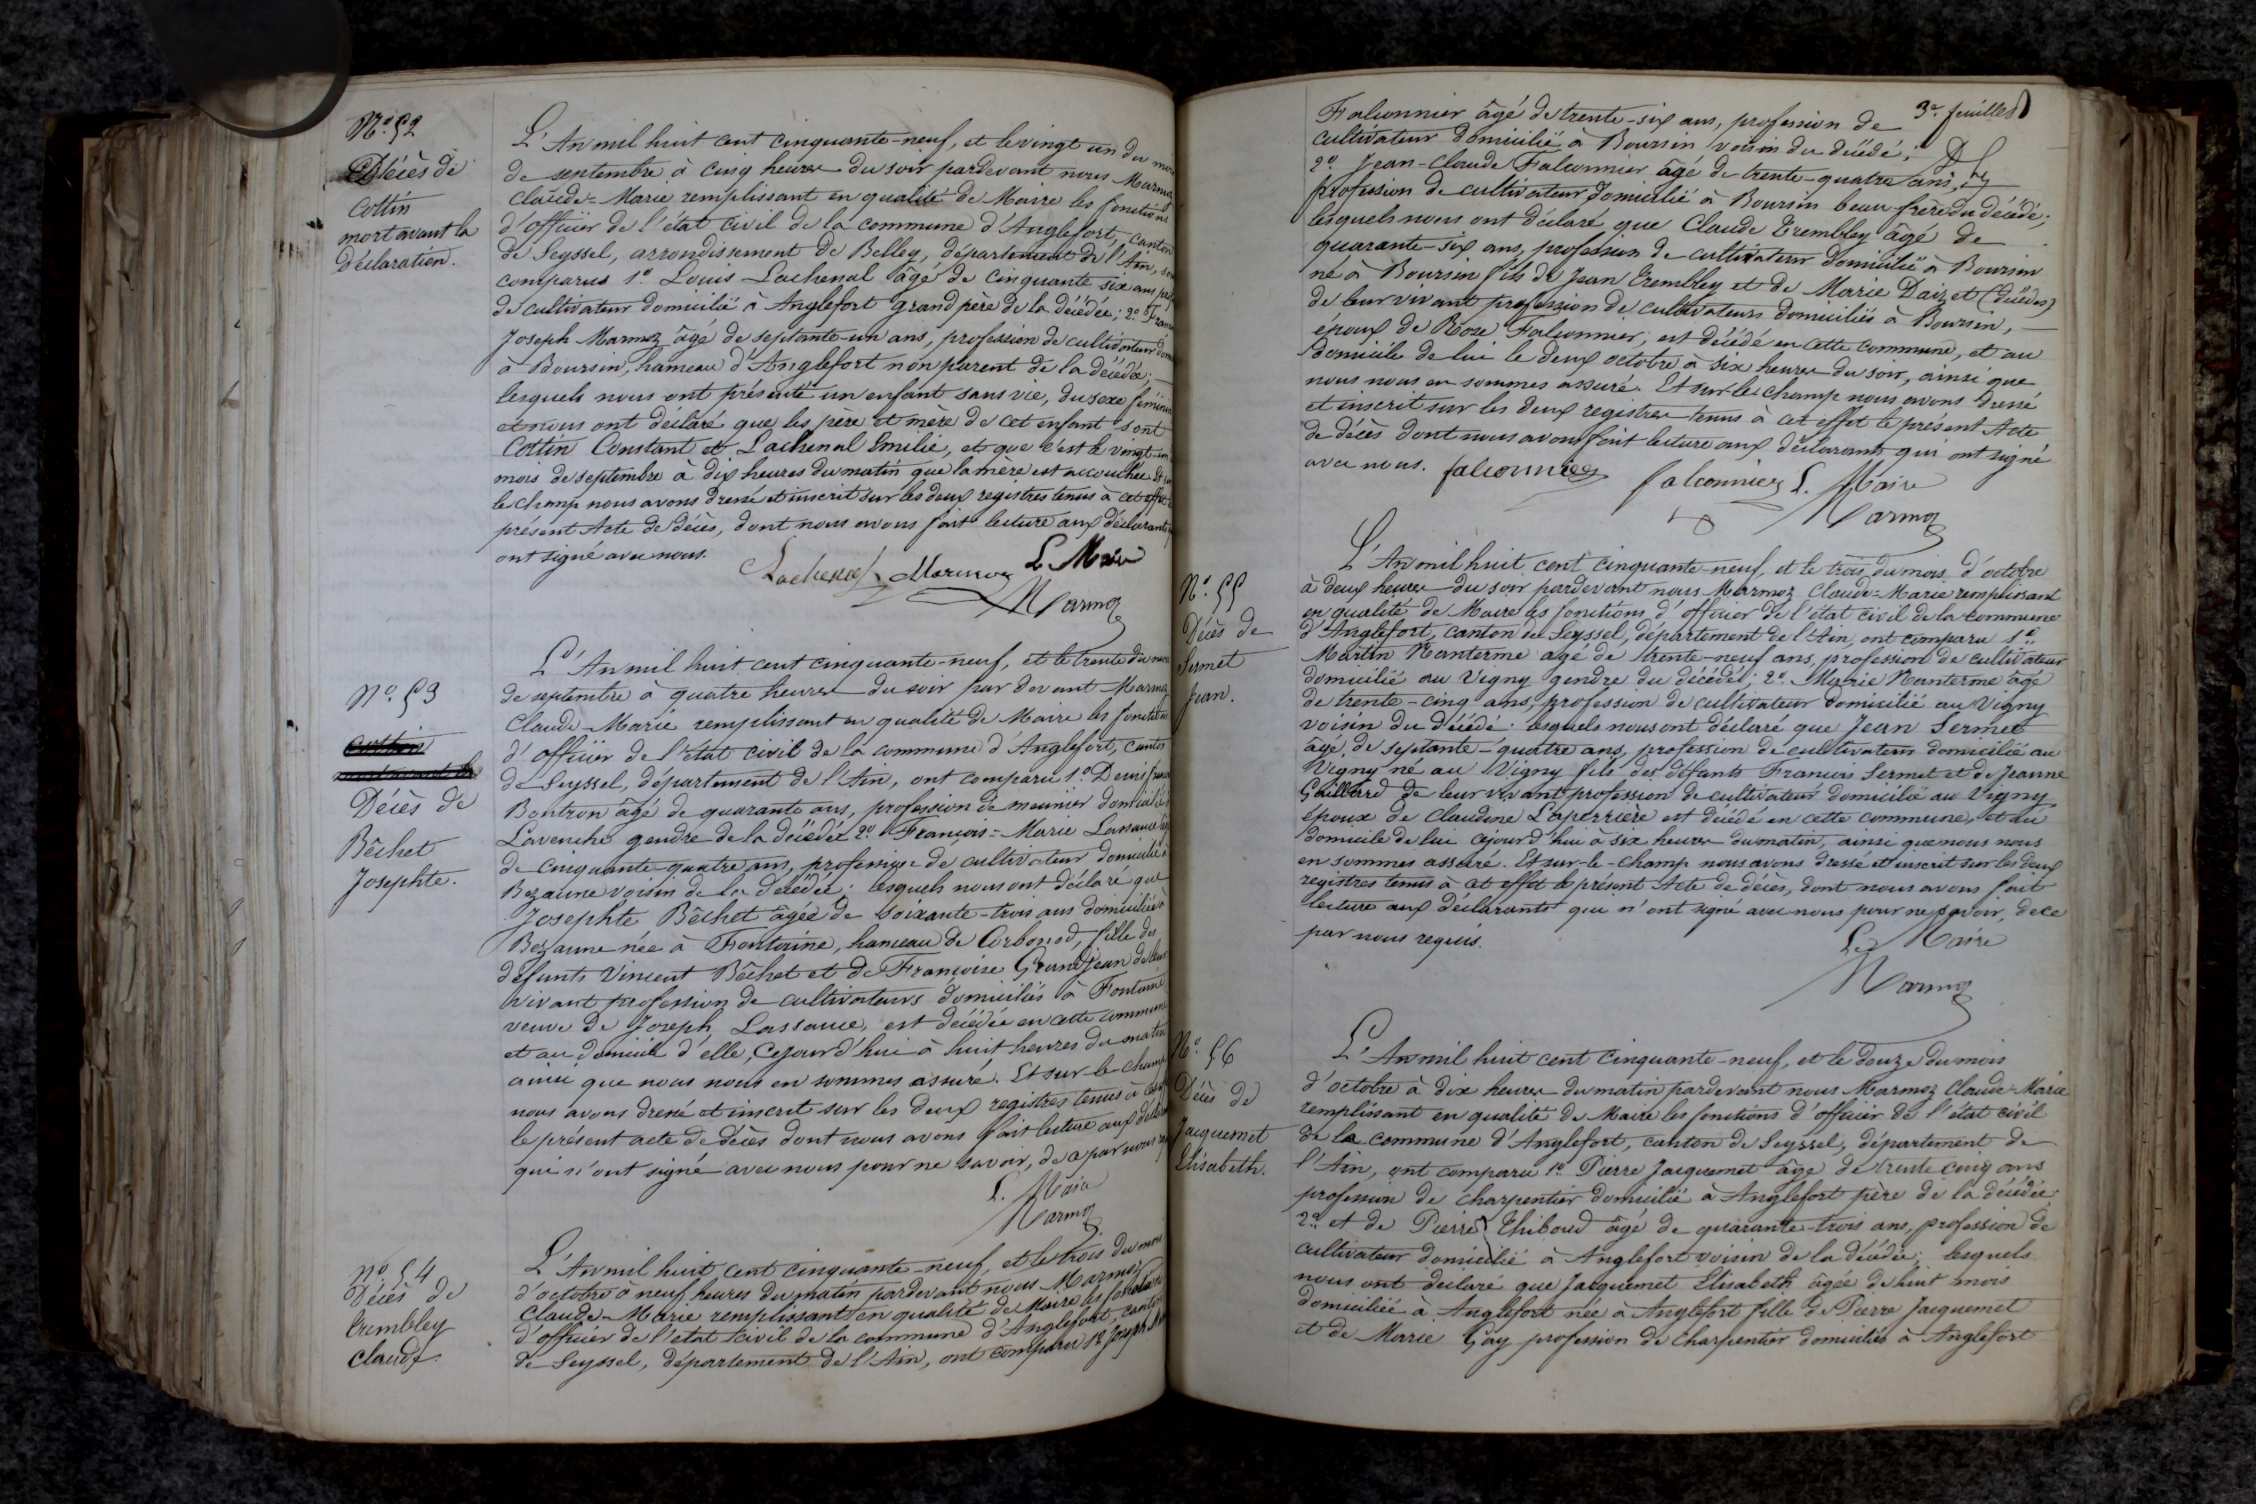 No. 52
Décès de
Cottin
mort avant la
déclaration.
L'An mil huit cent cinquante-neuf, et le vingt un du mois
de septembre à cinq heures du soir pardevant nous Marmoz
Claude-Marie remplissant en qualité de Maire les fonctions
d'officier de l'état civil de la commune d'Anglefort, canton
de Seyssel, arrondissement de Belley, département de l'Ain,
comparus 1o. Louis Lachenal âgé de cinquante six ans
de cultivateur domicilié à Anglefort grand père de la décédée; 2o.
Joseph Marmoz âgé de septante-un ans, profession de cultivateur
à Boursin, hameau d'Anglefort non parent de la décédée;
lesquels nous ont présenté un enfant sans vie, du sexe féminin
et nous ont déclaré que les père et mère de cet enfant sont
Cottin Constant et Lachenal Emilie, et que c'est le vingt-un
mois de septembre à dix heures du matin que la mère est accouchée
le champ nous avons dressé et inscrit sur les deux registres tenus à cet effet
présent Acte de décès, dont nous avons fait lecture aux déclarants
ont signé avec nous.
Lachenal Marmoz Le Maire
Marmoz
No. 53
Décès de
Bêchet
Josephte.
L'An mil huit cent cinquante-neuf, et le trente du mois
de septembre à quatre heures du soir par devant Marmoz
Claude-Marie remplissant en qualité de Maire les fonctions
d'officier de l'état civil de la commune d'Anglefort, canton
de Seyssel, département de l'Ain, ont comparu 1o. Denis
Boutron âgé de quarante ans, profession de meunier domicilié
Lavenche gendre de la décédée 2o. François-Marie Lassauce
de cinquante-quatre ans, profession de cultivateur domicilié à
Bezanne voisin de la décédée; lesquels nous ont déclaré que
Josephte Bêchet âgée de soixante-trois ans domiciliée à
Bezanne née à Fontaine, hameau de Corbonod, fille des
défunts Vincent Bêchet et de Françoise Grandjean de leur
vivant profession de cultivateurs domiciliés à Fontaine
veuve de Joseph Lassauce, est décédée en cette commune
et au domicile d'elle, cejourd'hui à huit heures du matin
ainsi que nous nous en sommes assuré. Et sur-le-champ
nous avons dressé et inscrit sur les deux registres tenus à cet
le présent acte de décès dont nous avons fait lecture aux
qui n'ont signé avec nous pour ne savoir, de ce par nous
L. Maire
Marmoz
No. 54
Décès de
Trembley
Claude.
L'An mil huit cent cinquante-neuf, et le trois du mois
d'octobre à neuf heures du matin pardevant nous Marmoz
Claude-Marie remplissant en qualité de Maire les fonctions
d'officier de l'état civil de la commune d'Anglefort, canton
de Seyssel, département de l'Ain, ont comparu 1o. Joseph
3e. feuillet
Falconnier âgé de trente-six ans, profession de
cultivateur domicilié à Boursin voisin du décédé;
2o. Jean-Claude Falconnier âgé de trente-quatre ans,
profession de cultivateur domicilié à Boursin beau-frère du décédé;
lesquels nous ont déclaré que Claude Trembley âgé de
quarante-six ans, profession de cultivateur domicilié à Boursin
né à Boursin fils de Jean Trembley et de Marie Daizet (décédés)
de leur vivant profession de cultivateurs domiciliés à Boursin,
époux de Rose Falconnier, est décédé en cette commune, et au
domicile de lui le deux octobre à six heures du soir, ainsi que
nous nous en sommes assuré. Et sur-le-champ nous avons dressé
et inscrit sur les deux registres tenus à cet effet le présent Acte
de décès dont nous avons fait lecture aux déclarants qui ont signé
avec nous. falconnier falconnier L. Maire
Marmoz
No. 55
Décès de
Sermet
Jean.
L'An mil huit cent cinquante-neuf, et le trois du mois d'octobre
à deux heures du soir pardevant nous Marmoz Claude-Marie remplissant
en qualité de Maire les fonctions d'officier de l'état civil de la commune
d'Anglefort, canton de Seyssel, département de l'Ain, ont comparu 1o.
Martin Nanterme agé de trente-neuf ans, profession de cultivateur
domicilié au Vigny gendre du décédé; 2o. Marie Nanterme âgé
de trente-cinq ans, profession de cultivateur domicilié au Vigny
voisin du décédé. lesquels nous ont déclaré que Jean Sermet
âgé de septante-quatre ans, profession de cultivateur domicilié au
Vigny né au Vigny fils des défunts François Sermet et de Jeanne
Gaillard de leur vivant profession de cultivateur domicilié au Vigny
époux de Claudine Laperrière est décédé en cette commune, et au
domicile de lui cejourd'hui à six heures du matin, ainsi que nous nous
en sommes assuré. Et sur-le-champ nous avons dressé et inscrit sur les deux
registres tenus à cet effet le présent Acte de décès, dont nous avons fait
lecture aux déclarants qui n'ont signé avec nous pour ne savoir, de ce
par nous requis.
Le Maire
Marmoz
No. 56
Décès de
Jacquemet
Elisabeth.
L'An mil huit cent cinquante-neuf, et le douze du mois
d'octobre à dix heures du matin pardevant nous Marmoz Claude-Marie
remplissant en qualité de Maire les fonctions d'officier de l'état civil
de la commune d'Anglefort, canton de Seyssel, département de
l'Ain, ont comparu 1o. Pierre Jacquemet âgé de trente cinq ans
profession de charpentier domicilié à Anglefort père de la décédée
2o. et de Pierre Thiboud âgé de quarante-trois ans, profession de
cultivateur domicilié à Anglefort voisin de la décédée; lesquels
nous ont declaré que Jacquemet Elisabeth âgée de huit mois
domiciliée à Anglefort née à Anglefort fille de Pierre Jacquemet
et de Marie Gay profession de charpentier domiciliés à Anglefort